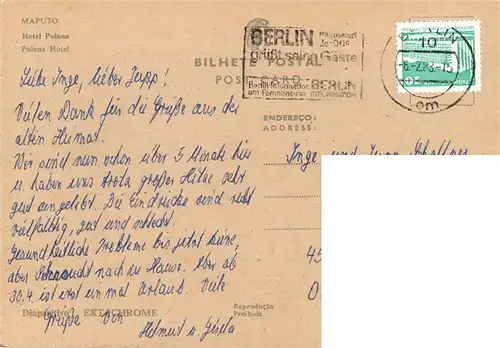 MAPUTO
Hotel Polana
Polana Hotel
BILHETE POSTAL
POST CARD
BERLIN Hauptstadt
der DDR
grüßt seine Gäste
Berlin-Information BERLIN
am Fernsehturm INFORMATION
BERLIN
10
-6.-2.83.-15
om
ENDEREÇO:
ADDRESS:
Liebe Inge, lieber Jupp!
Vielen Dank für die Grüße aus der
alten Heimat.
Wir sind nun schon über 5 Monate hier
u. haben uns trotz großer Hitze sehr
gut eingelebt. Die Eindrücke sind recht
vielfältig, gut und schlecht.
Gesundheitliche Probleme bis jetzt keine,
aber Sehnsucht nach zu Hause. Aber ab
30.4. ist erst einmal Urlaub. Viele
Grüße von
Helmut u. Gisela
Inge und
45
Diapositivo EKTACHROME
Reprodução
Proibida